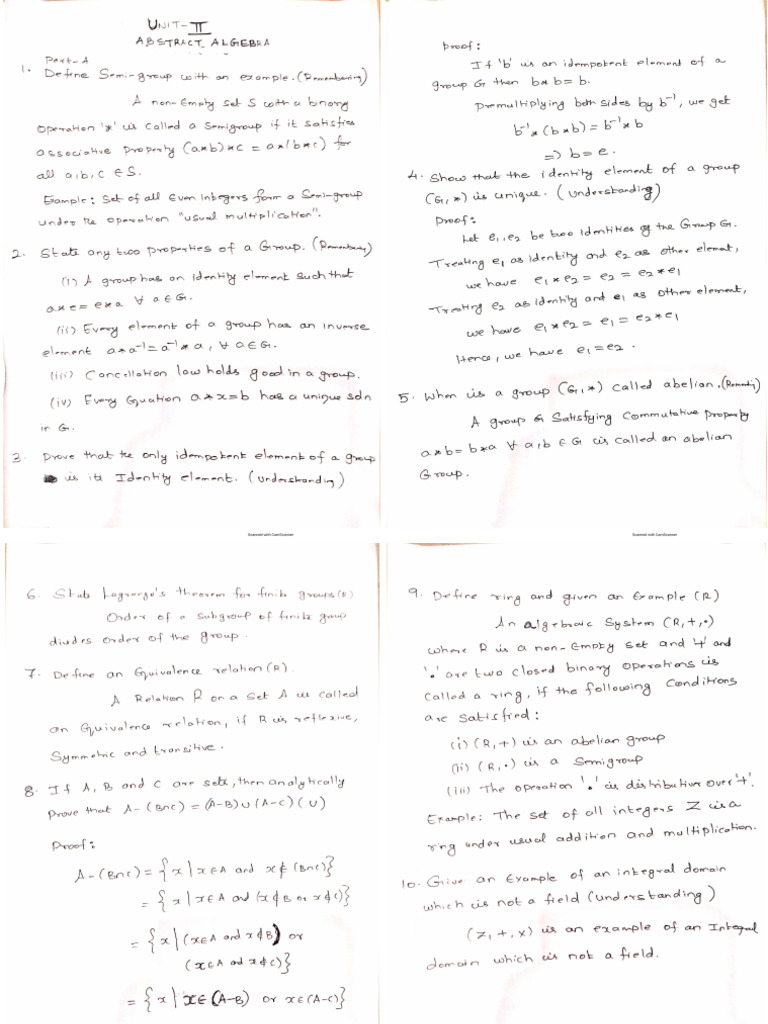 UNIT-II
ABSTRACT ALGEBRA
Part-A
1. Define Semi-group with an example. (Remembering)
A non-Empty set S with a binary
operation '*' is called a semigroup if it satisfies
associative property (a*b)*c = a*(b*c) for
all a,b,c ∈ S.
Example: Set of all Even Integers form a Semi-group
under the operation "usual multiplication".
2. State any two properties of a Group. (Remembering)
(i) A group has an identity element such that
a*e = e*a ∀ a∈G.
(ii) Every element of a group has an inverse
element a*a⁻¹ = a⁻¹*a, ∀ a∈G.
(iii) Cancellation law holds good in a group.
(iv) Every Equation a*x=b has a unique soln
in G.
3. Prove that the only idempotent element of a group
is its Identity element. (Understanding)
Proof:
If 'b' is an idempotent element of a
group G then b*b = b.
Premultiplying both sides by b⁻¹, we get
b⁻¹*(b*b) = b⁻¹*b
=> b = e.
4. Show that the identity element of a group
(G,*) is unique. (Understanding)
Proof:
Let e₁,e₂ be two identities of the Group G.
Treating e₁ as identity and e₂ as other element,
we have e₁*e₂ = e₂ = e₂*e₁
Treating e₂ as identity and e₁ as other element,
we have e₁*e₂ = e₁ = e₂*e₁
Hence, we have e₁=e₂.
5. When is a group (G,*) called abelian.
A group G Satisfying Commutative property
a*b = b*a ∀ a,b ∈ G is called an abelian
Group.
Scanned with CamScanner
Scanned with CamScanner
6. State Lagrange's theorem for finite groups (R)
Order of a subgroup of finite group
divides order of the group.
7. Define an Equivalence relation (R).
A Relation R on a set A is called
an Equivalence relation, if R is reflexive,
Symmetric and transitive.
8. If A, B and C are sets, then analytically
prove that A-(B∩C) = (A-B)∪(A-C) (U)
Proof:
A-(B∩C) = {x | x∈A and x∉(B∩C)}
= {x | x∈A and (x∉B or x∉C)}
= {x | (x∈A and x∉B) or
(x∈A and x∉C)}
= {x | x∈(A-B) or x∈(A-C)}
9. Define ring and given an Example (R)
An algebraic System (R,+,•)
where R is a non-Empty set and '+' and
'•' are two closed binary operations is
called a ring, if the following Conditions
are satisfied:
(i) (R,+) is an abelian group
(ii) (R,•) is a Semigroup
(iii) The operation '•' is distributive over '+'.
Example: The set of all integers Z is a
ring under usual addition and multiplication.
10. Give an Example of an integral domain
which is not a field (Understanding)
(Z,+,×) is an example of an Integral
domain which is not a field.